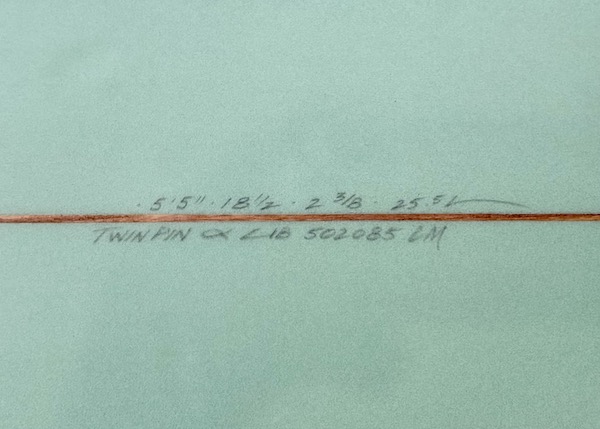 · 5'5" · 18 1/2 · 2 3/8 · 25.5 L
TWIN PIN ∝ LIB 502085 LM